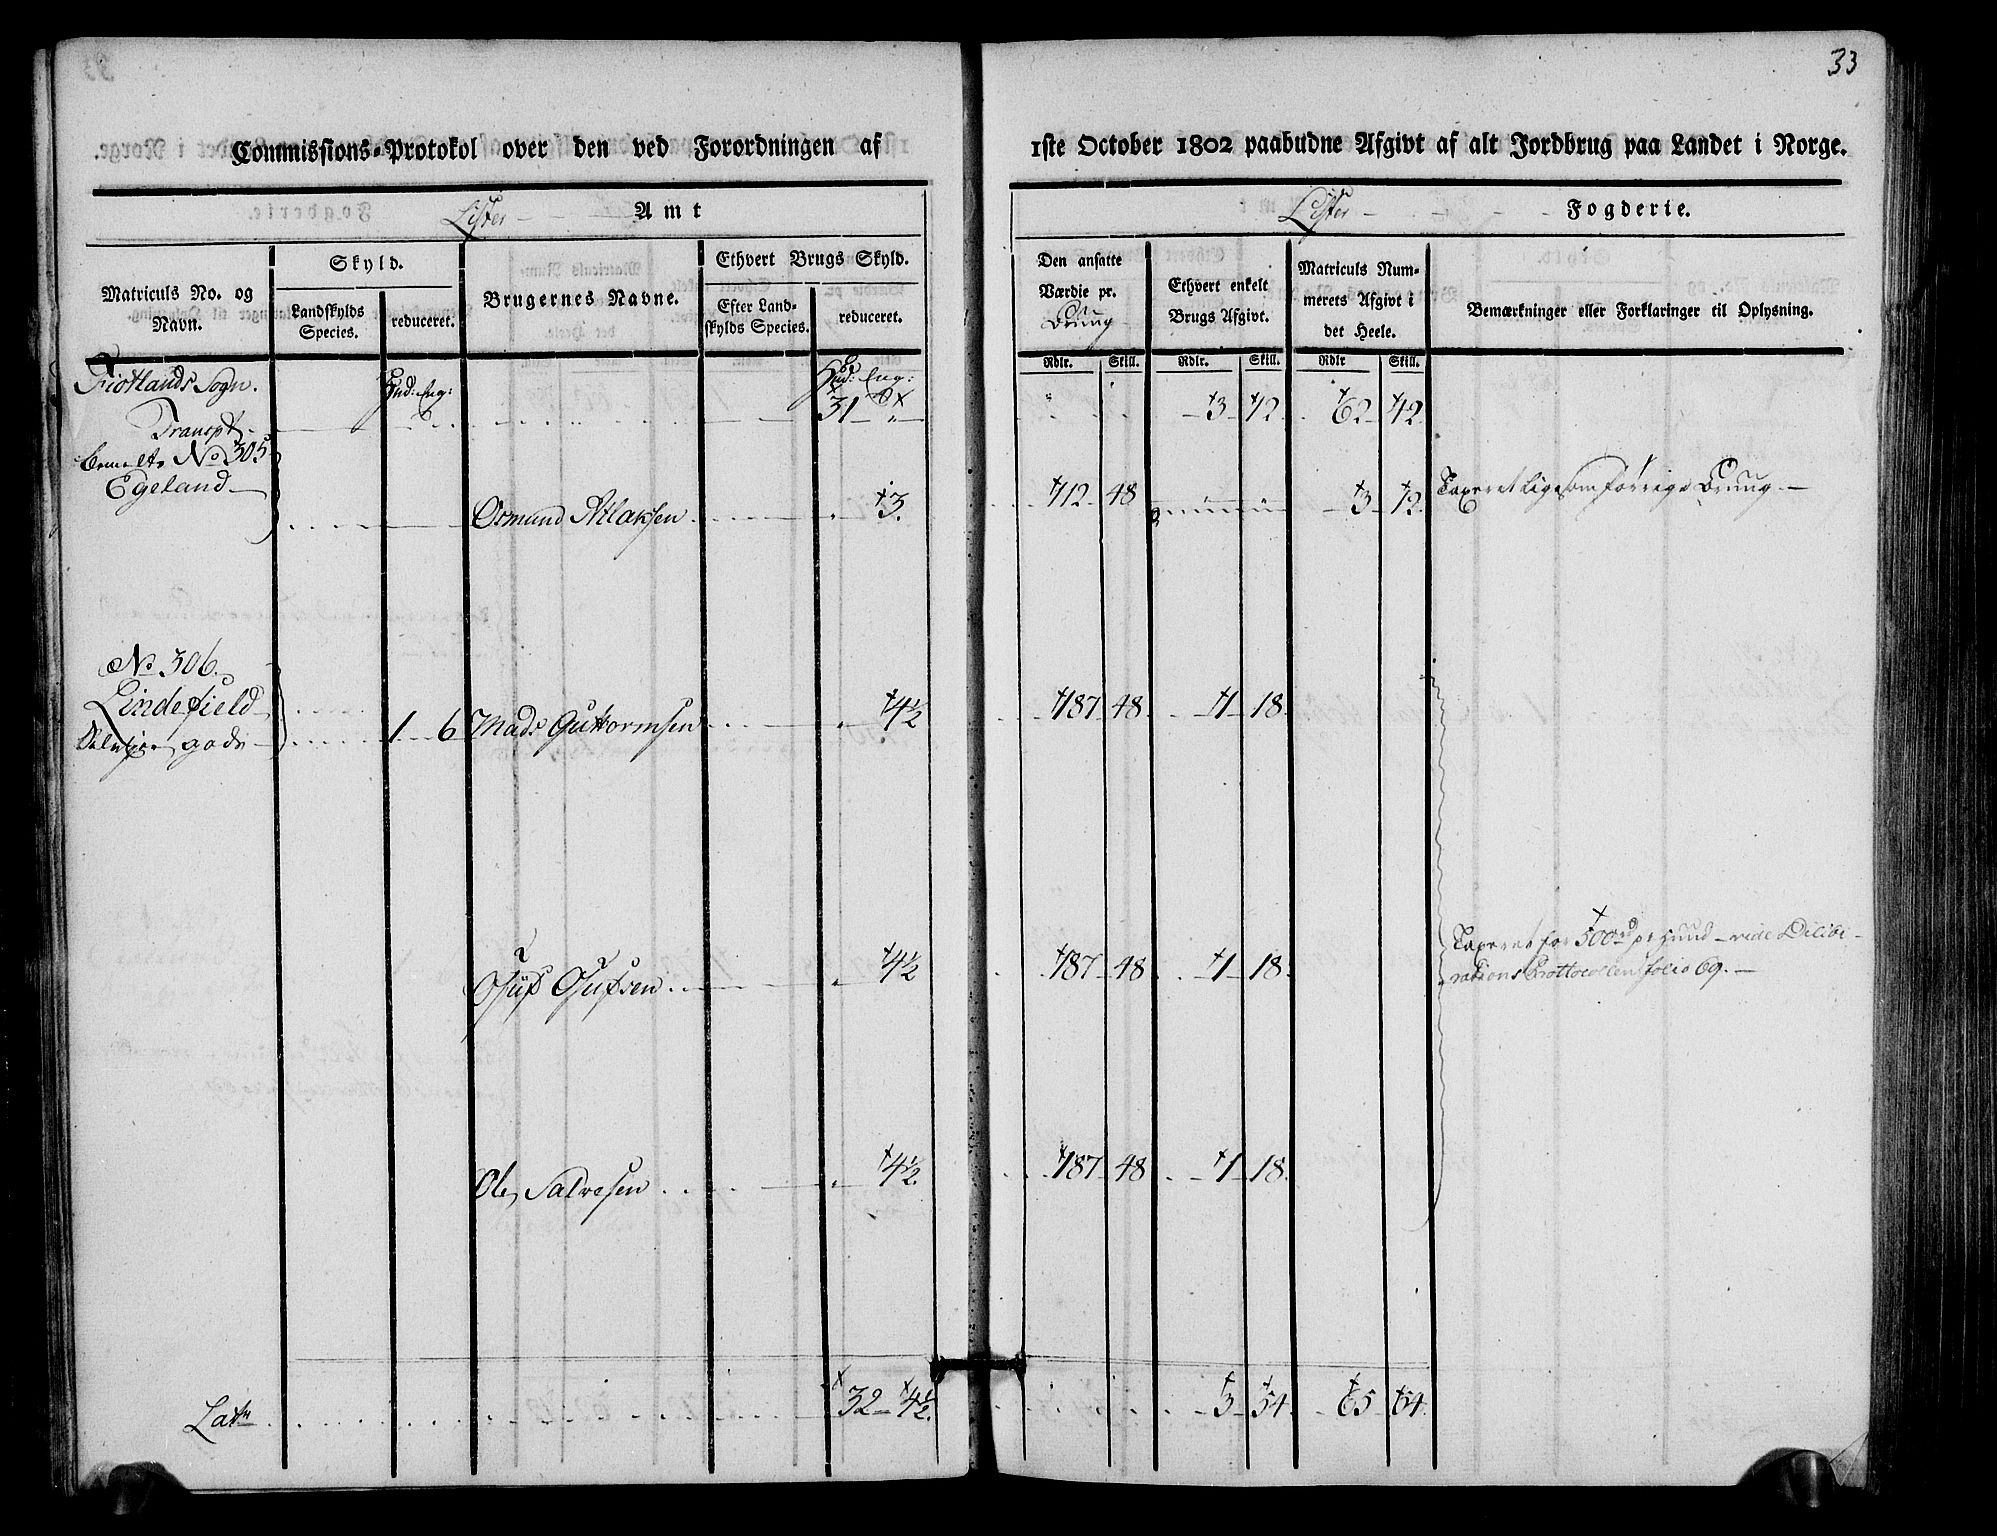 33
Commissions-Protokol over den ved Forordningen af
1ste October 1802 paabudne Afgivt af alt Jordbrug paa Landet i Norge.
Lister Amt
Lister Fogderie.
Matriculs No. og Navn.
Skyld.
Landskylds Species.
reduceret.
Brugernes Navne.
Ethvert Brugs Skyld.
Efter Landskylds Species.
reduceret.
Den ansatte Værdie pr. Brug
Ethvert enkelt Brugs Afgivt.
Matriculs Nummerets Afgivt i det Heele.
Bemærkninger eller Forklaringer til Oplysning.
Rdlr. Skill. Rdlr. Skill. Rdlr Skill.
Fiotlands Sogn. Hud: Eng: Hud: Eng:
Transpt 31 " 3 12 62 42
No 305
Egeland
Osmund Atlaksen 3. 112 48 3 12 Taxeret ligesom forrige Brug.
No 306.
Lindefield
gods 1 6 Mads Guttormsen 4½ 187 48 1 18
Osuf Osufsen 4½ 187 48 1 18 Taxeret for 500rd pr Hund vide Delibe-
rations Prottocollens folio 69.
Ole Salvesen 4½ 187 48 1 18
Latr 32 4½ 3 54 65 54